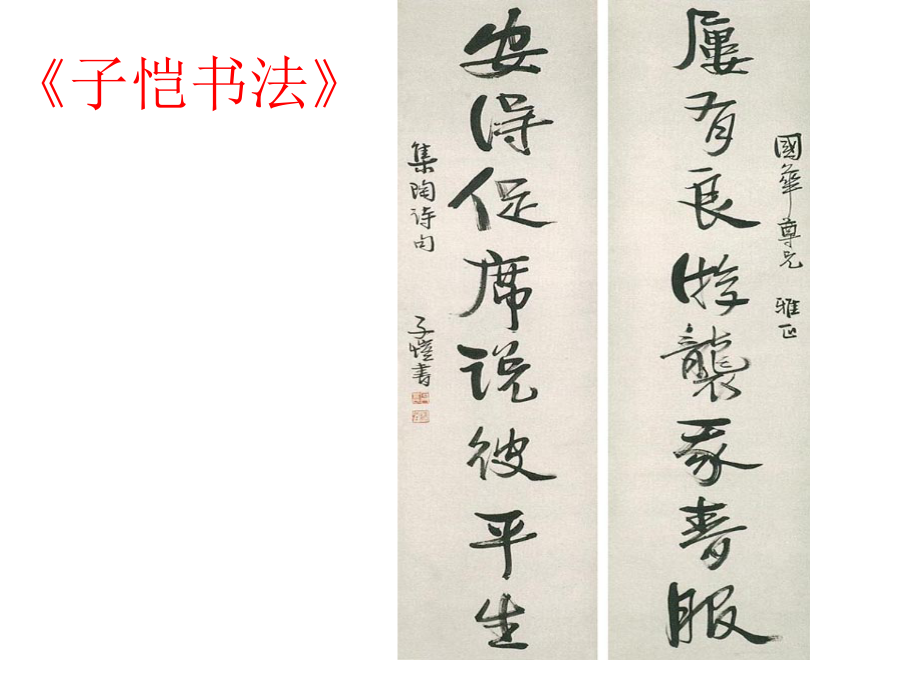 《子恺书法》
國華尊兄 雅正
屢有良游襲我春服
安得促席说彼平生
集陶诗句 子愷書